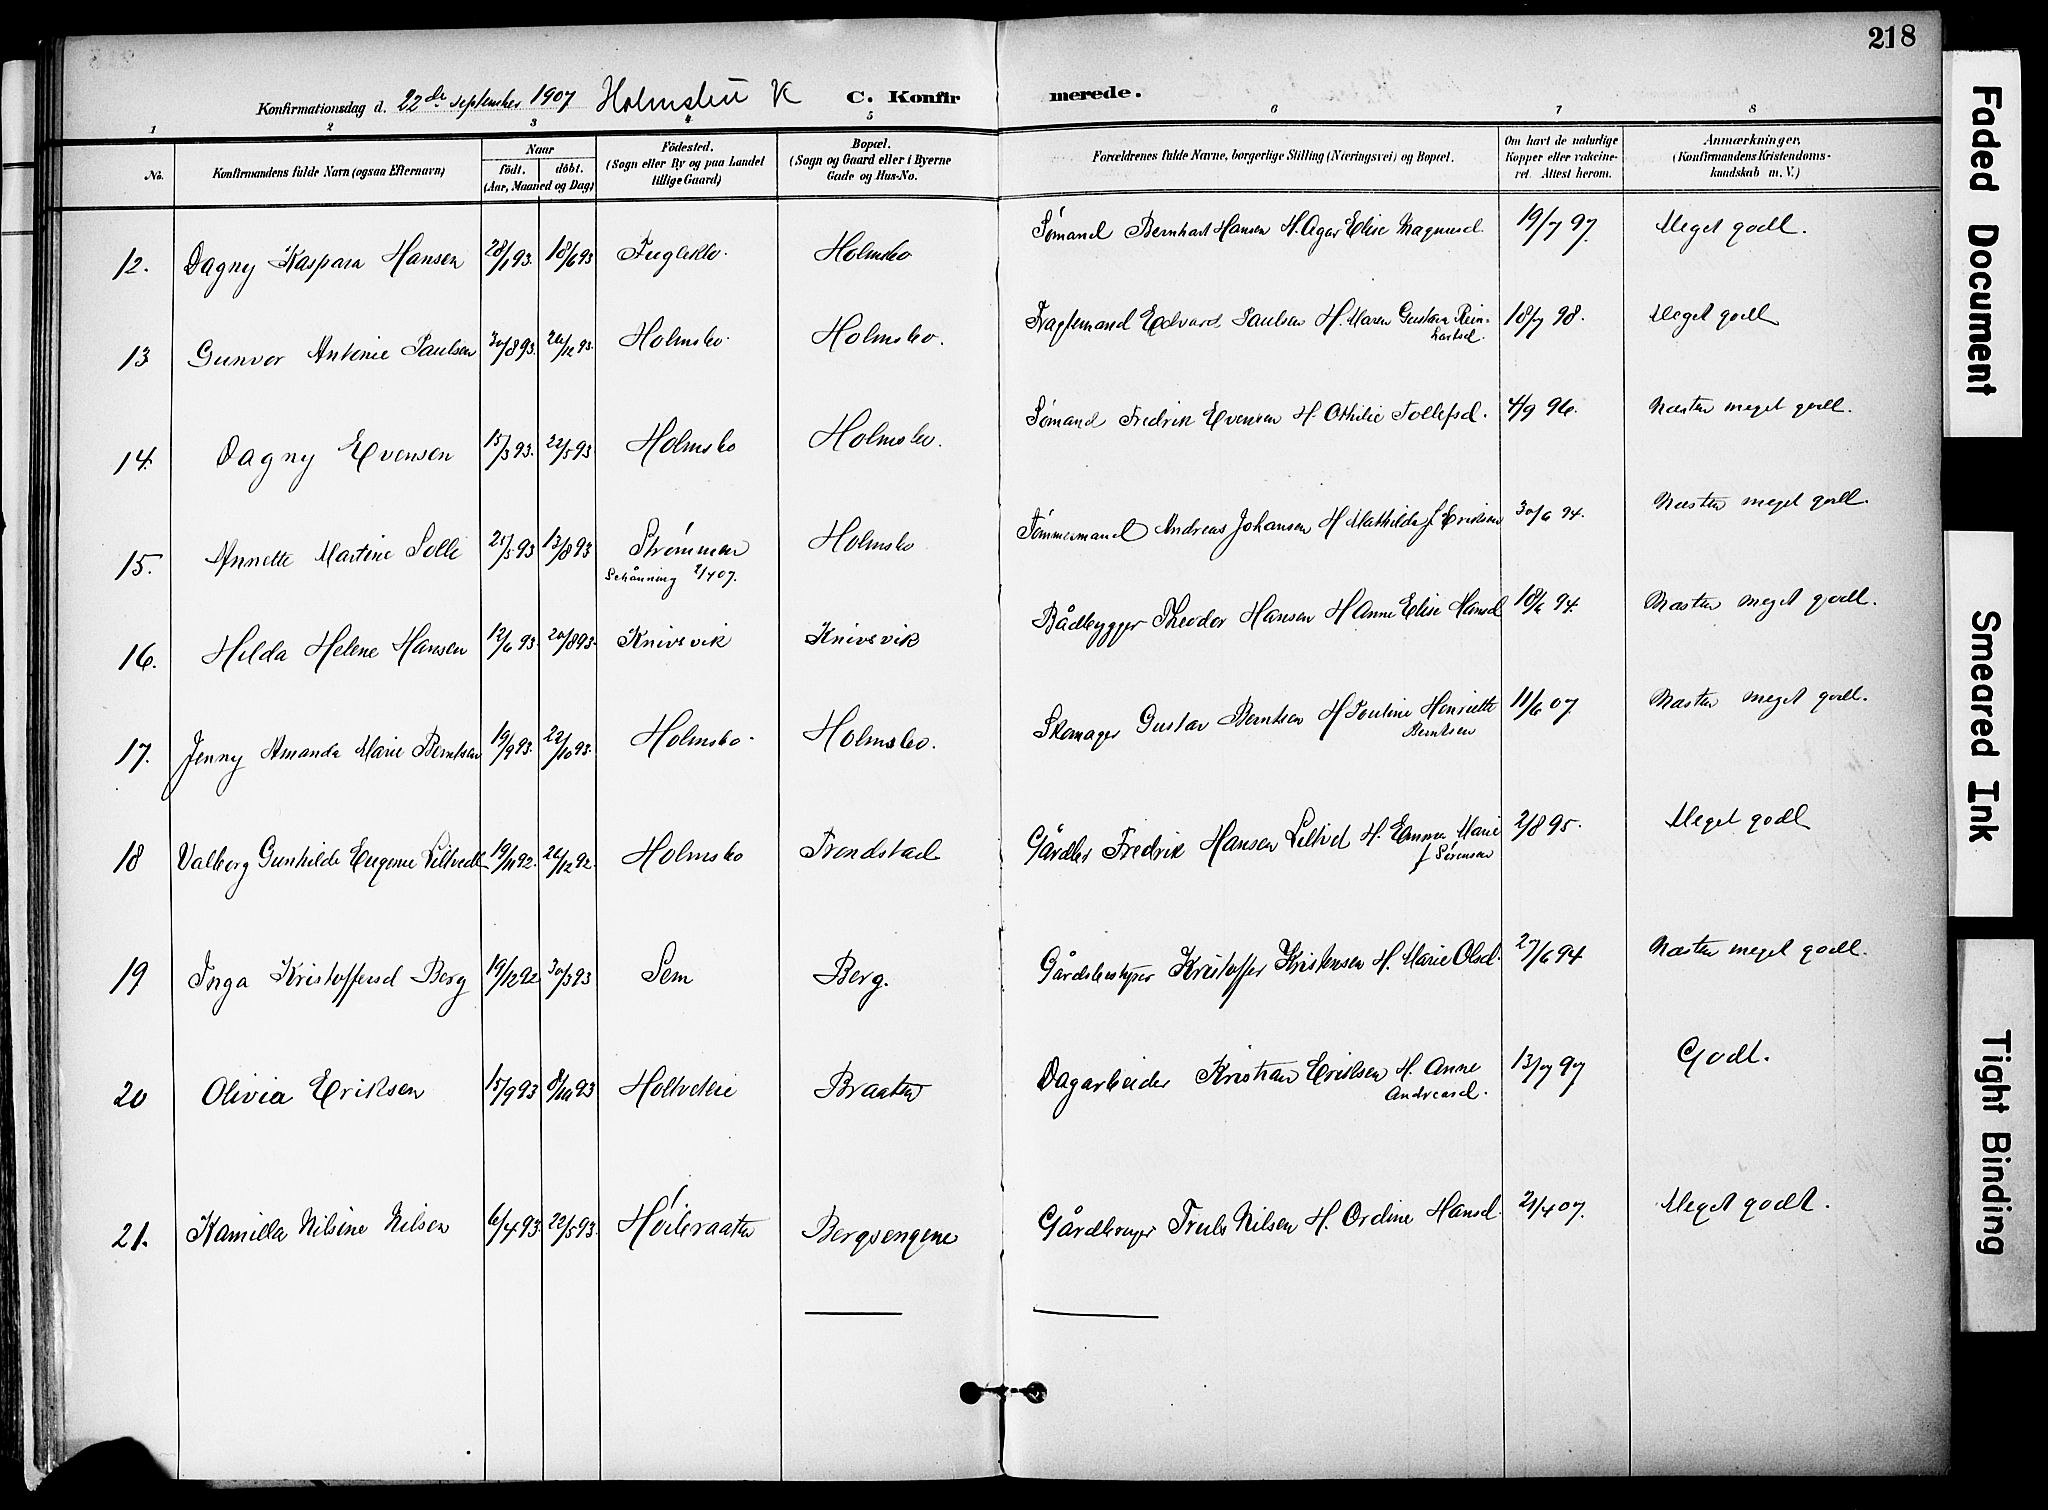 218
Konfirmationsdag d. 22de september 1907 Holmsbu K C. Konfirmerede.
1 2 3 4 5 6 7 8
No. Konfirmandens fulde Navn (ogsaa Efternavn) Naar födt. döbt. (Aar, Maaned og Dag) Födested. (Sogn eller By og paa Landet tillige Gaard) Bopæl. (Sogn og Gaard eller i Byerne Gade og Hus-No. Forældrenes fulde Navne, borgerlige Stilling (Næringsvei) og Bopæl. Om havt de naturlige Kopper eller vakcineret. Attest herom. Anmærkninger. (Konfirmandens Kristendomskundskab m. V.)
12. Dagny Kaspara Hansen 28/1 93. 18/6 93 Fuglebo. Holmsbo Sömand Bernhart Hansen H. Agar Elise Magnusd. 19/7 97. Meget godt.
13 Gunvor Antonie Paulsen 30/8 93. 26/12 93. Holmsbo. Holmsbo. Fragtemand Edvard Paulsen H. Maren Gustava Reinhartsd. 18/7 98. Meget godt
14. Dagny Evensen 15/3 93. 22/5 93 Holmsbo Holmsbo. Sömand Fredrik Evensen H. Othilie Tollefsd. 4/9 96. Næsten meget godt.
15. Annette Martine Solli 25/5 93 13/8 93 Strömmen Holmsbo Tömmermand Andreas Johansen H Mathilde f Eriksen 30/6 94. Næsten meget godt.
Schånning 2/4 07.
16. Hilda Helene Hansen 12/6 93. 20/8 93. Knivsvik Knivsvik Bådbygger Theodor Hansen H Anne Elise Hansd 18/6 94. Næsten meget godt.
17. Jenny Amanda Marie Berntsen 19/9 93. 22/10 93. Holmsbo. Holmsbo. Skomager Gustav Berntsen H Pauline Henriette Berntsen 11/6 07. Næsten meget godt.
18 Valborg Gunhilde Eugenie Siltvedt 19/11 92. 26/12 92. Holmsbo Trondstad Gårdbr Fredrik Hansen Siltvd H. Emma Marie f Sörensen 2/8 95. Meget godt
19 Inga Kristoffersd Berg 19/12 92 30/3 93 Sem Berg. Gårdsbestyrer Kristoffer Kristensen H. Marie Olsd. 27/6 94 Næsten meget godt.
20 Olivia Eriksen 15/9 93 8/10 93 Holtvekie Braaten Dagarbeider Kristian Eriksen H. Anne Andreasd. 13/7 97 Godt.
21. Kamilla Nilsine Nilsen 6/4 93. 22/5 93. Höibraaten Bergsengene Gårdbruger Truls Nilsen H. Ordine Hansd. 21/4 07. Meget godt.
Faded Document
Smeared Ink
Tight Binding